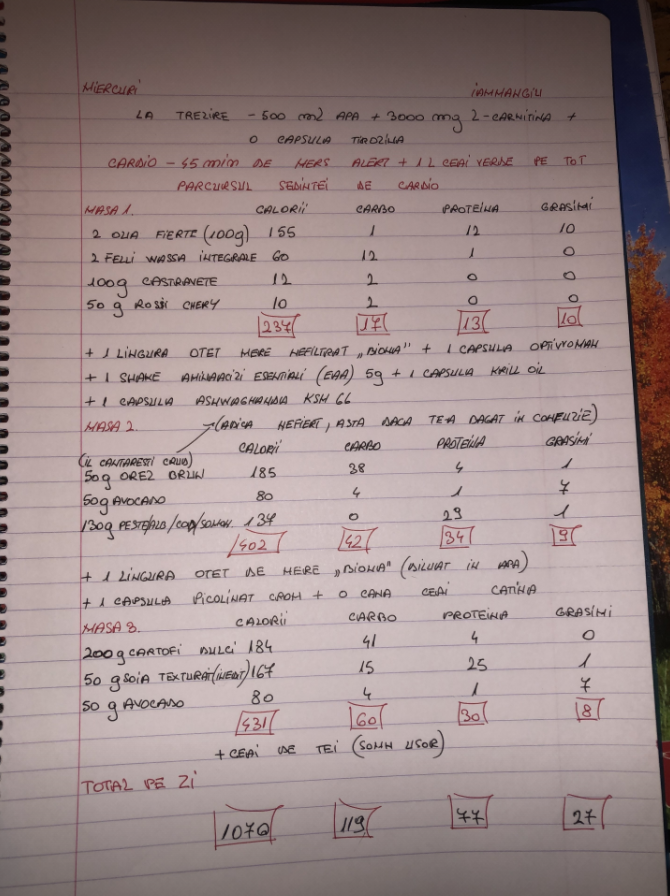 MIERCURI IAMMANGIU
LA TREZIRE - 500 ml APA + 3000 mg L-CARNITINA +
O CAPSULA TIROZINA
CARDIO - 45 min DE MERS ALERT + 1 L CEAI VERDE PE TOT
PARCURSUL SEDINTEI DE CARDIO
MASA 1. CALORII CARBO PROTEINA GRASIMI
2 OUA FIERTE (100g) 155 1 12 10
2 FELII WASSA INTEGRALE 60 12 1 0
100g CASTRAVETE 12 2 0 0
50 g ROSII CHERY 10 2 0 0
237 17 13 10
+ 1 LINGURA OTET MERE NEFILTRAT „BIONA" + 1 CAPSULA OPTIWOMAN
+ 1 SHAKE AMINOACIZI ESENTIALI (EAA) 5g + 1 CAPSULA KRILL OIL
+ 1 CAPSULA ASHWAGHANDA KSM 66
MASA 2. (ADICA NEFIERT, ASTA DACA TE-A BAGAT IN CONFUZIE)
CALORII CARBO PROTEINA GRASIMI
(IL CANTARESTI CRUD)
50g OREZ BRUN 185 38 4 1
50g AVOCADO 80 4 1 7
130g PESTE/ALB/COD/SOMON. 137 0 29 1
402 42 34 9
+ 1 LINGURA OTET DE MERE „BIONA" (DILUAT IN APA)
+ 1 CAPSULA PICOLINAT CROM + O CANA CEAI CATINA
MASA 3. CALORII CARBO PROTEINA GRASIMI
200g CARTOFI DULCI 184 41 4 0
50 g SOIA TEXTURAT (INEDIT) 167 15 25 1
50 g AVOCADO 80 4 1 7
431 60 30 8
+ CEAI DE TEI (SOMN USOR)
TOTAL PE ZI
1070 119 77 27